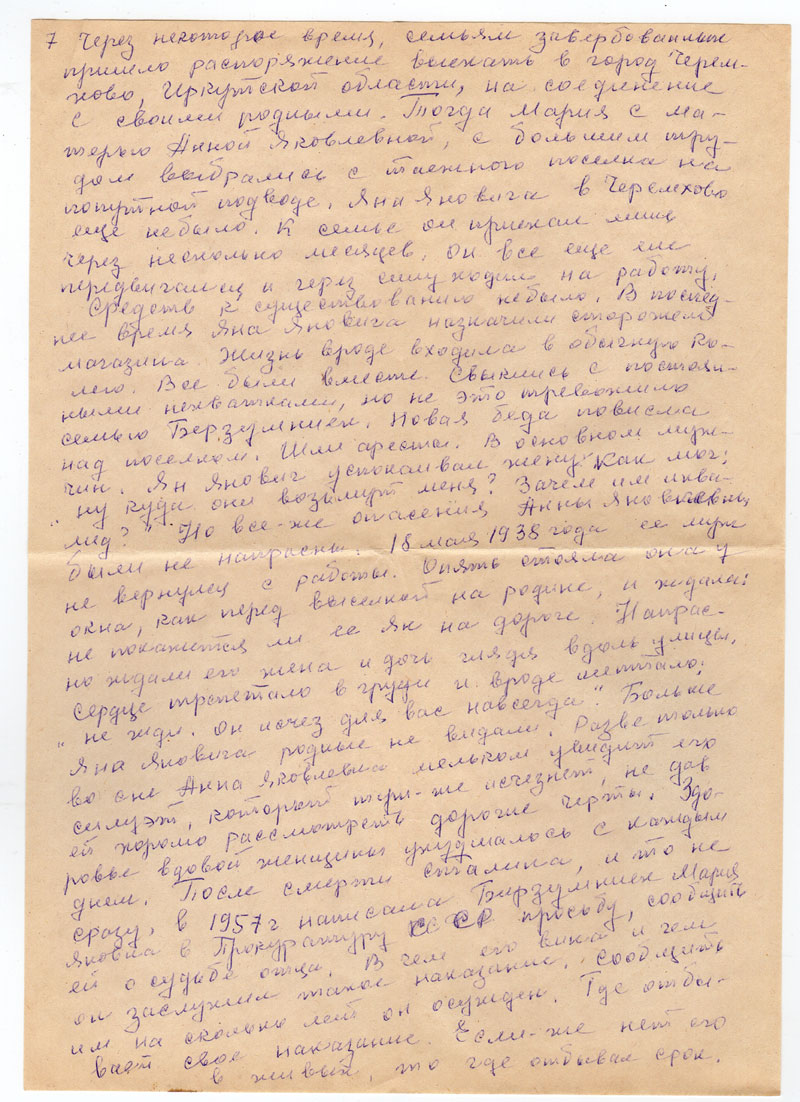 7 Через некоторое время, семьям завербованных
пришло распоряжение выехать в город Черем-
хово, Иркутской области, на соединение
с своими родными. Тогда Мария с ма-
терью Анной Яковлевной, с большим тру-
дом выбрались с таежного поселка на
попутной подводе. Яна Яновича в Черемхово
еще небыло. К семье он приехал лишь
через несколько месяцев. Он все еще еле
передвигался и через силу ходил на работу.
Средств к существованию небыло. В послед-
нее время Яна Яновича назначили сторожем
магазина. Жизнь вроде входила в обычную ко-
лею. Все были вместе. Свыклись с постоян-
ными нехватками, но не это тревожило
семью Берзумниек. Новая беда повисла
над поселком. Шли аресты. В основном муж-
чин. Ян Янович успокаивал жену как мог:
"ну куда они возьмут меня? Зачем им инва-
лид?" Но все-же опасения Анны Яковлевны
были не напрасны. 18 мая 1938 года ее муж
не вернулся с работы. Опять стояла она у
окна, как перед высылкой на родине, и ждала:
не покажется ли ее Ян на дороге. Напрас-
но ждали его жена и дочь глядя вдоль улицы.
Сердце трепетало в груди и вроде шептало:
"не жди. Он исчез для вас навсегда". Больше
Яна Яновича родные не видали. Разве только
во сне Анна Яковлевна мельком увидит его
силуэт, который тут-же исчезнет, не дав
ей хорошо рассмотреть дорогие черты. Здо-
ровье вдовой женщины ухудшалось с каждым
днем. После смерти Сталина, и то не
сразу, в 1957г написала Берзумниек Мария
Яновна в Прокуратуру СССР просьбу, сообщить
ей о судьбе отца. В чем его вина и чем
он заслужил такое наказание. Сообщить
им на сколько лет он осужден. Где отбы-
вает свое наказание. Если-же нет его
в живых, то где отбывал срок.